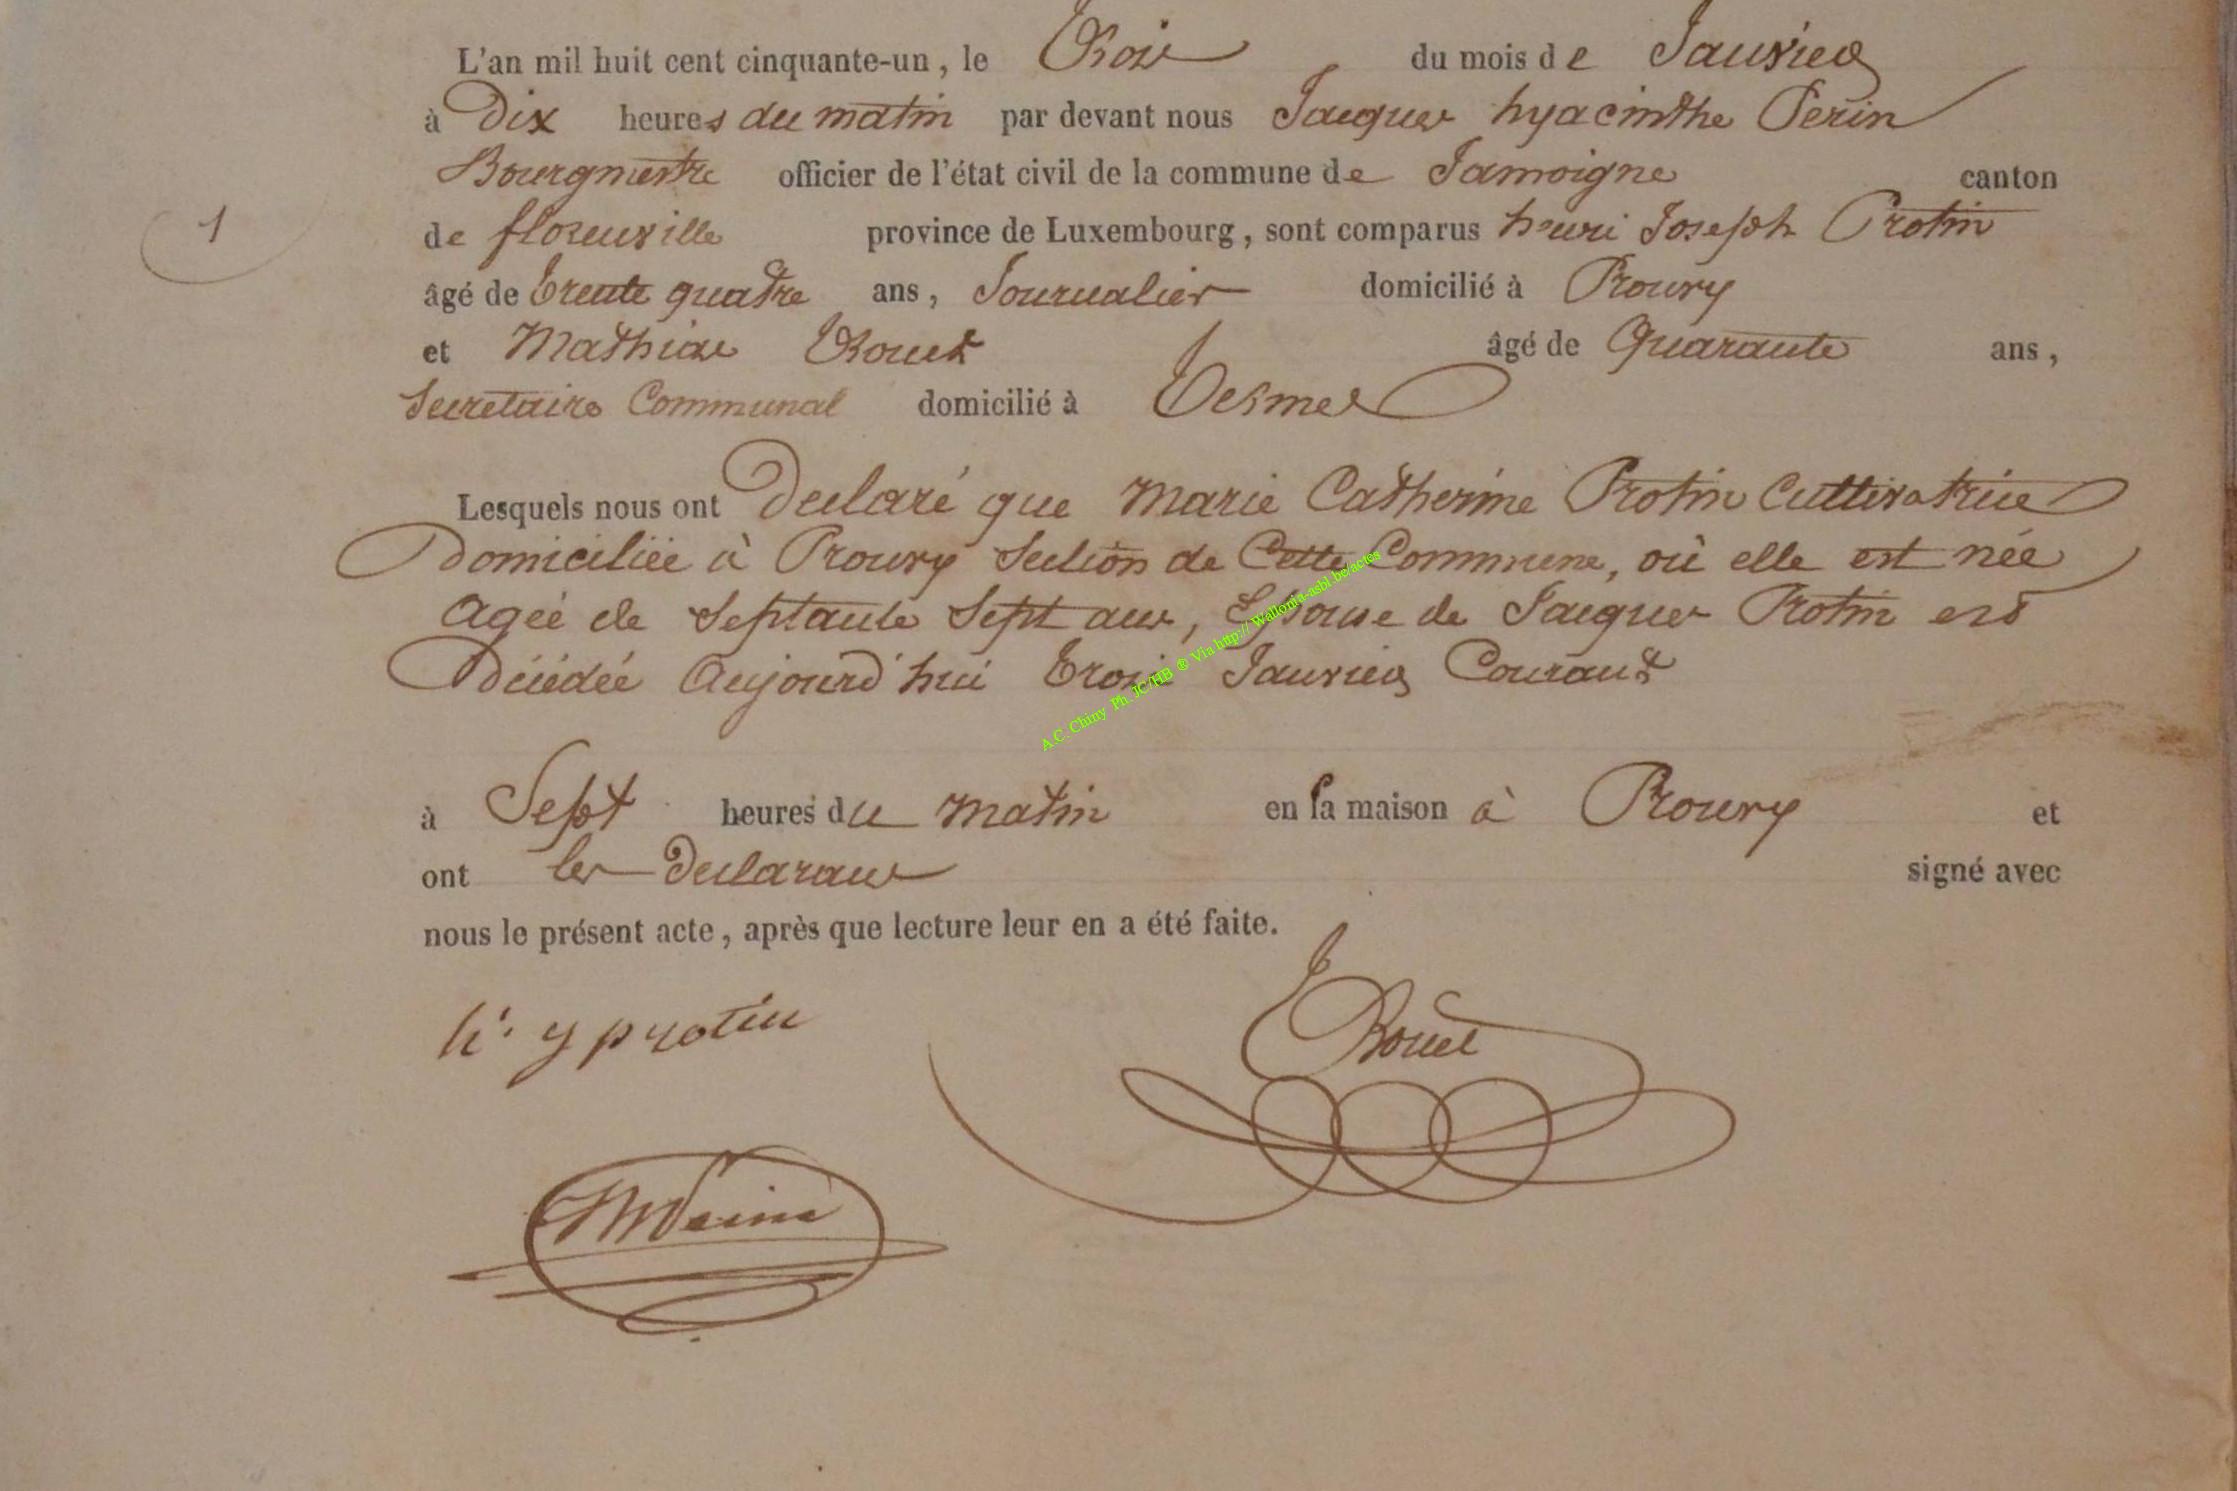 L'an mil huit cent cinquante-un, le Trois du mois de Janvier
à Dix heures du matin par devant nous Jacques hyacinthe Perin
Bourgmestre officier de l'état civil de la commune de Jamoigne canton
de florenville province de Luxembourg, sont comparus henri Joseph Protin
âgé de trente quatre ans, Journalier domicilié à Prouvy
1
et Mathias Rouet âgé de Quarante ans,
Secretaire Communal domicilié à Termes
Lesquels nous ont Declaré que Marie Catherine Protin Cultivatrice
Domiciliée à Prouvy Section de Cette Commune, où elle est née
Agée de Septante Sept ans, Epouse de Jacques Protin est
Décédée Aujourd'hui trois Janvier Courant
A.C. Chiny Ph. JC/HB ® Via http:// Wallonia-asbl.be/actes
à Sept heures du matin en sa maison à Prouvy et
ont les Declarans signé avec
nous le présent acte, après que lecture leur en a été faite.
h. y protin
Rouet